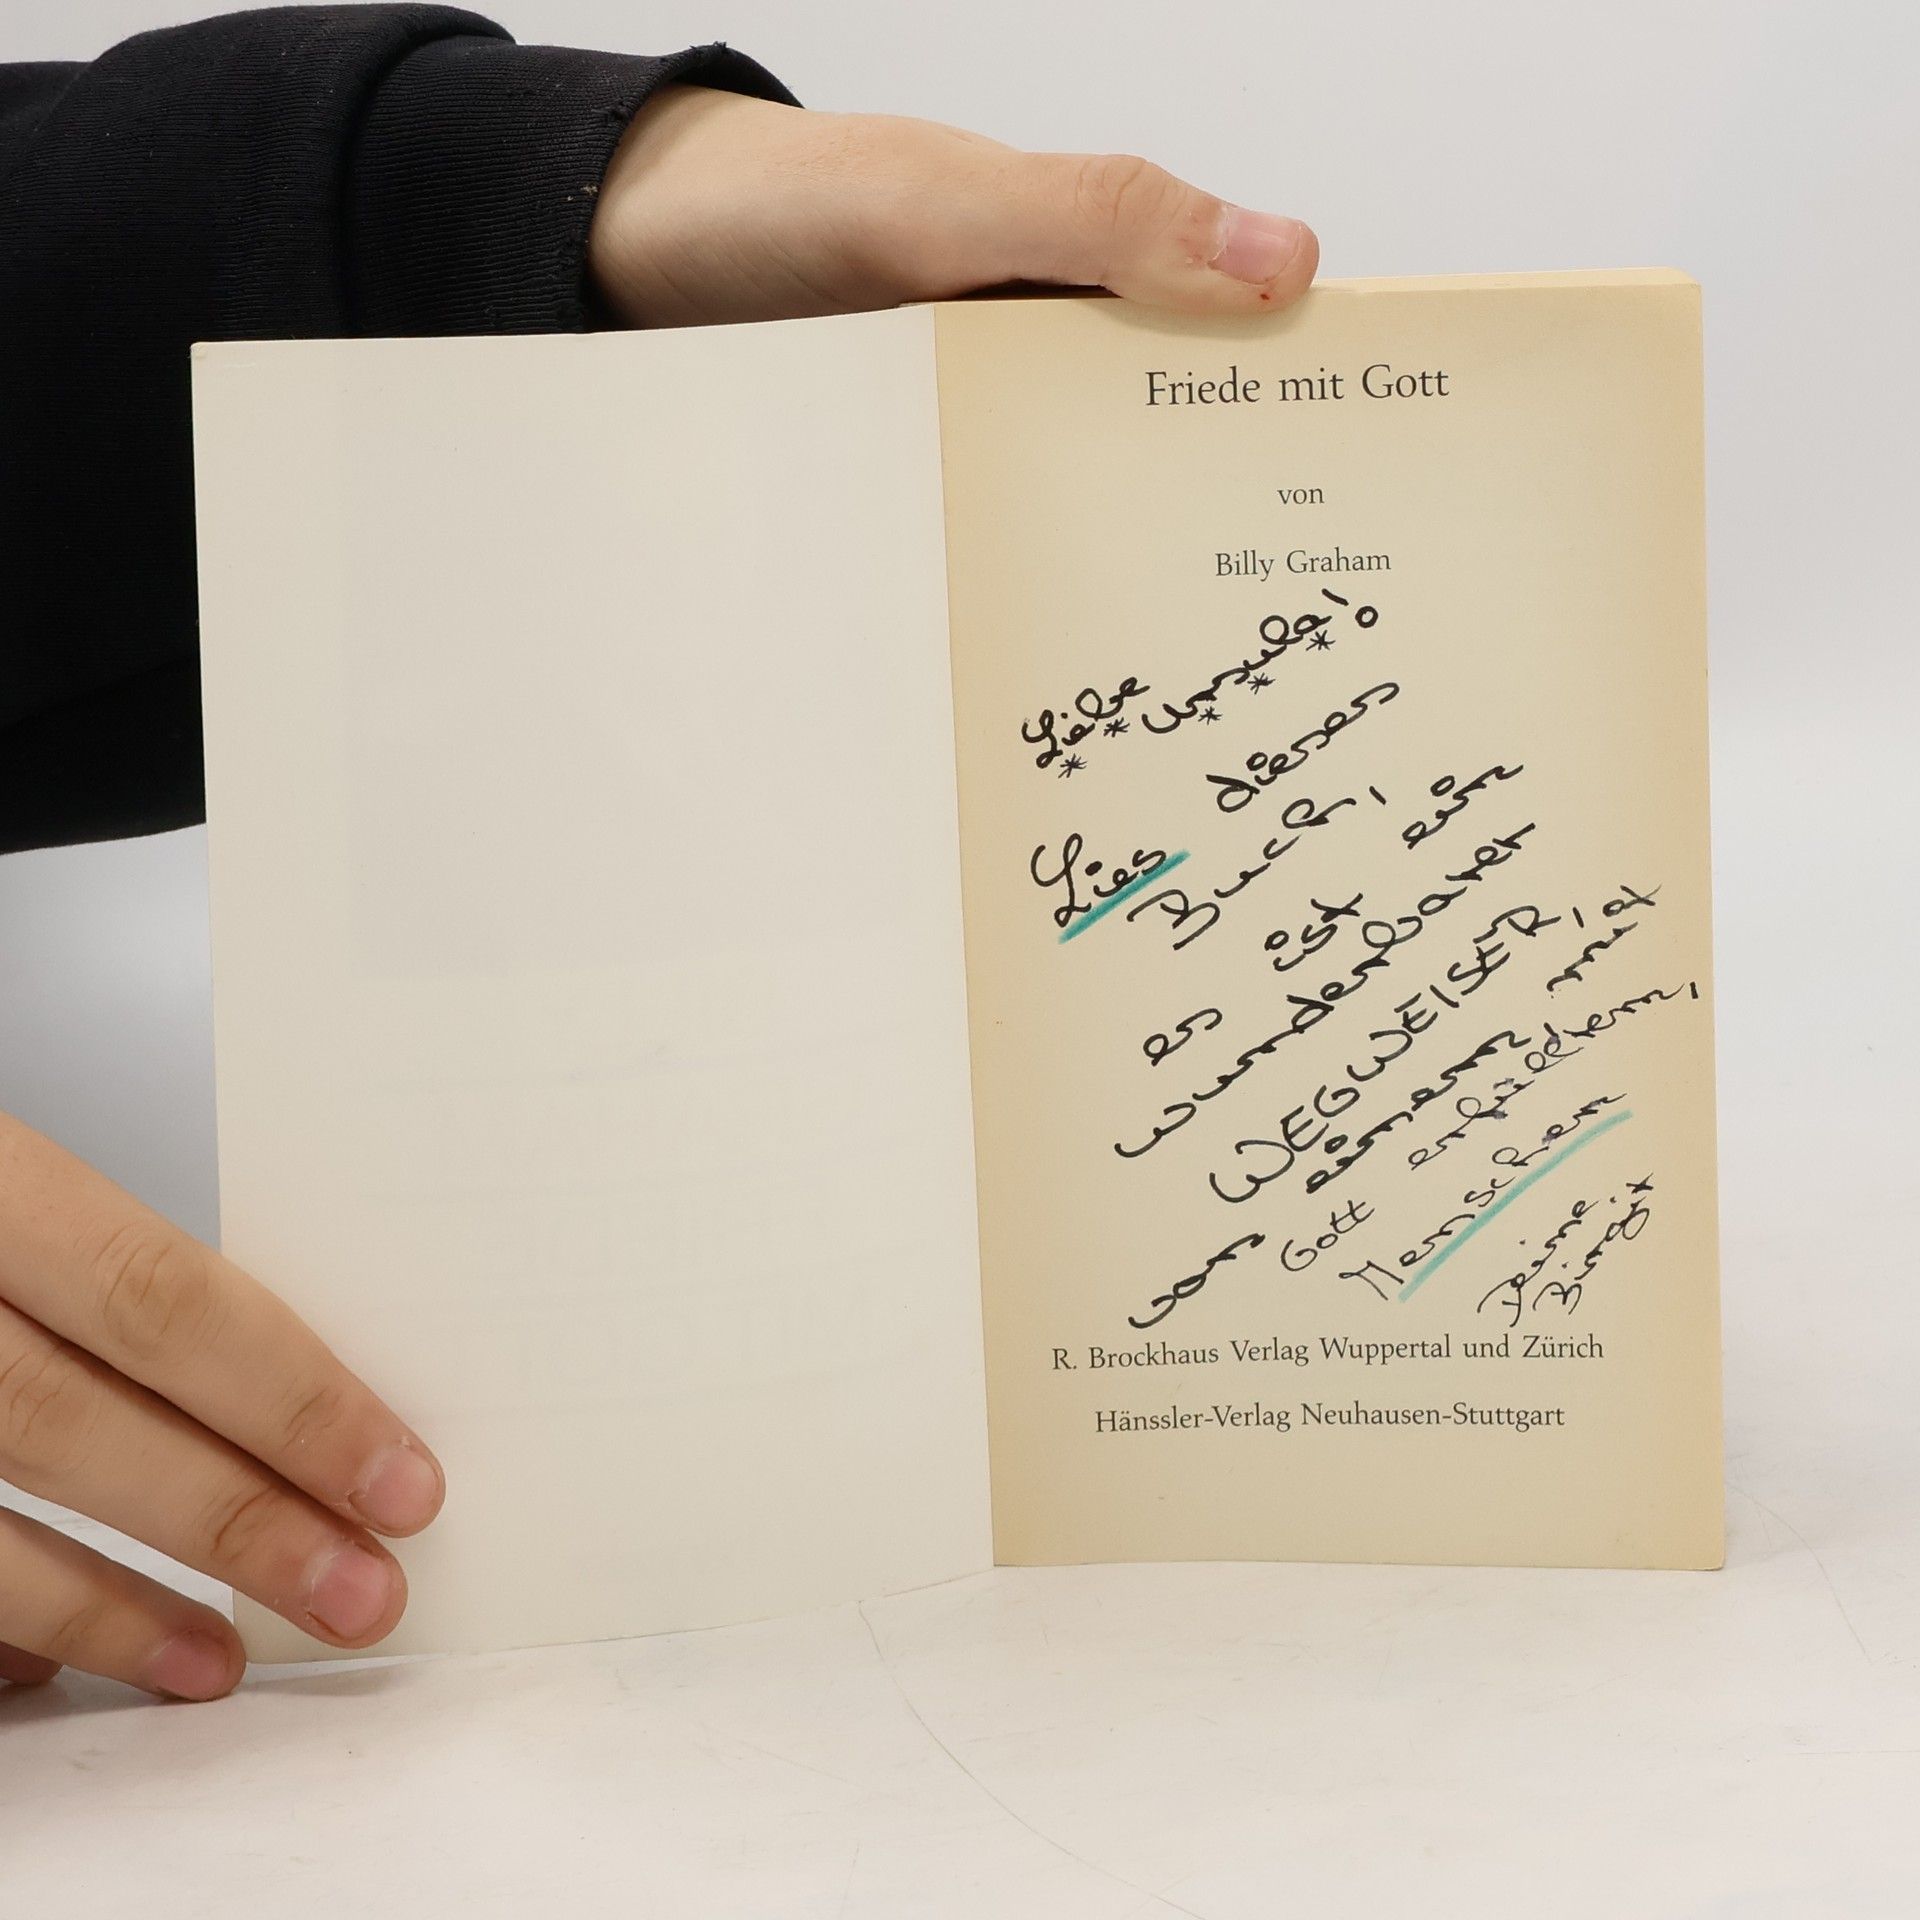 Friede mit Gott
von
Billy Graham
Liebe Ursula!
Lies dieses
Buch,
es ist ein
wunderbarer
WEGWEISER,
von einem mit
Gott erfüllten,
Menschen
Deine
Birgit
R. Brockhaus Verlag Wuppertal und Zürich
Hänssler-Verlag Neuhausen-Stuttgart